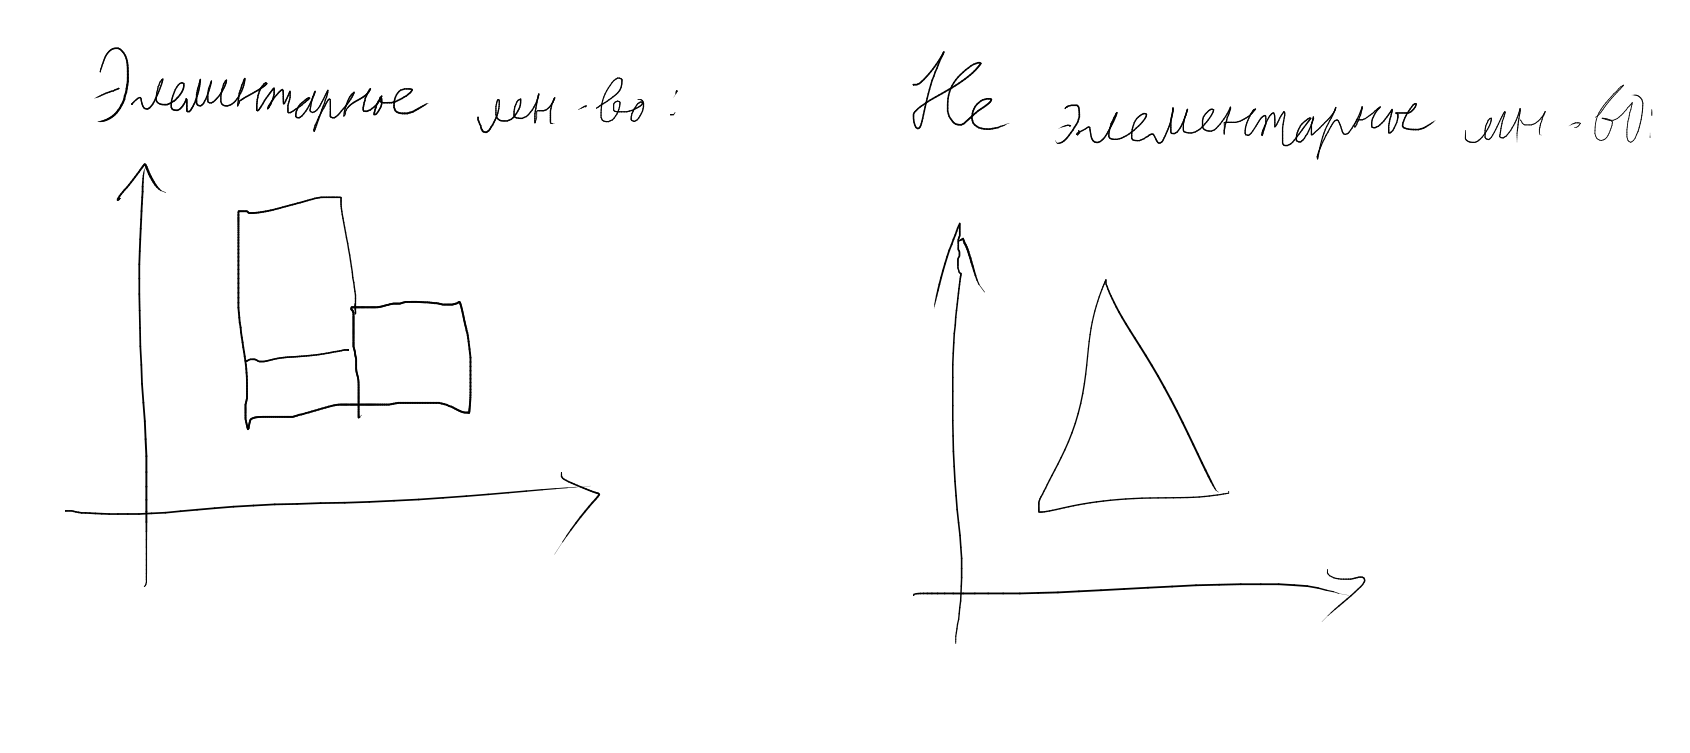 Элементарное мн-во:
Не элементарное мн-во: